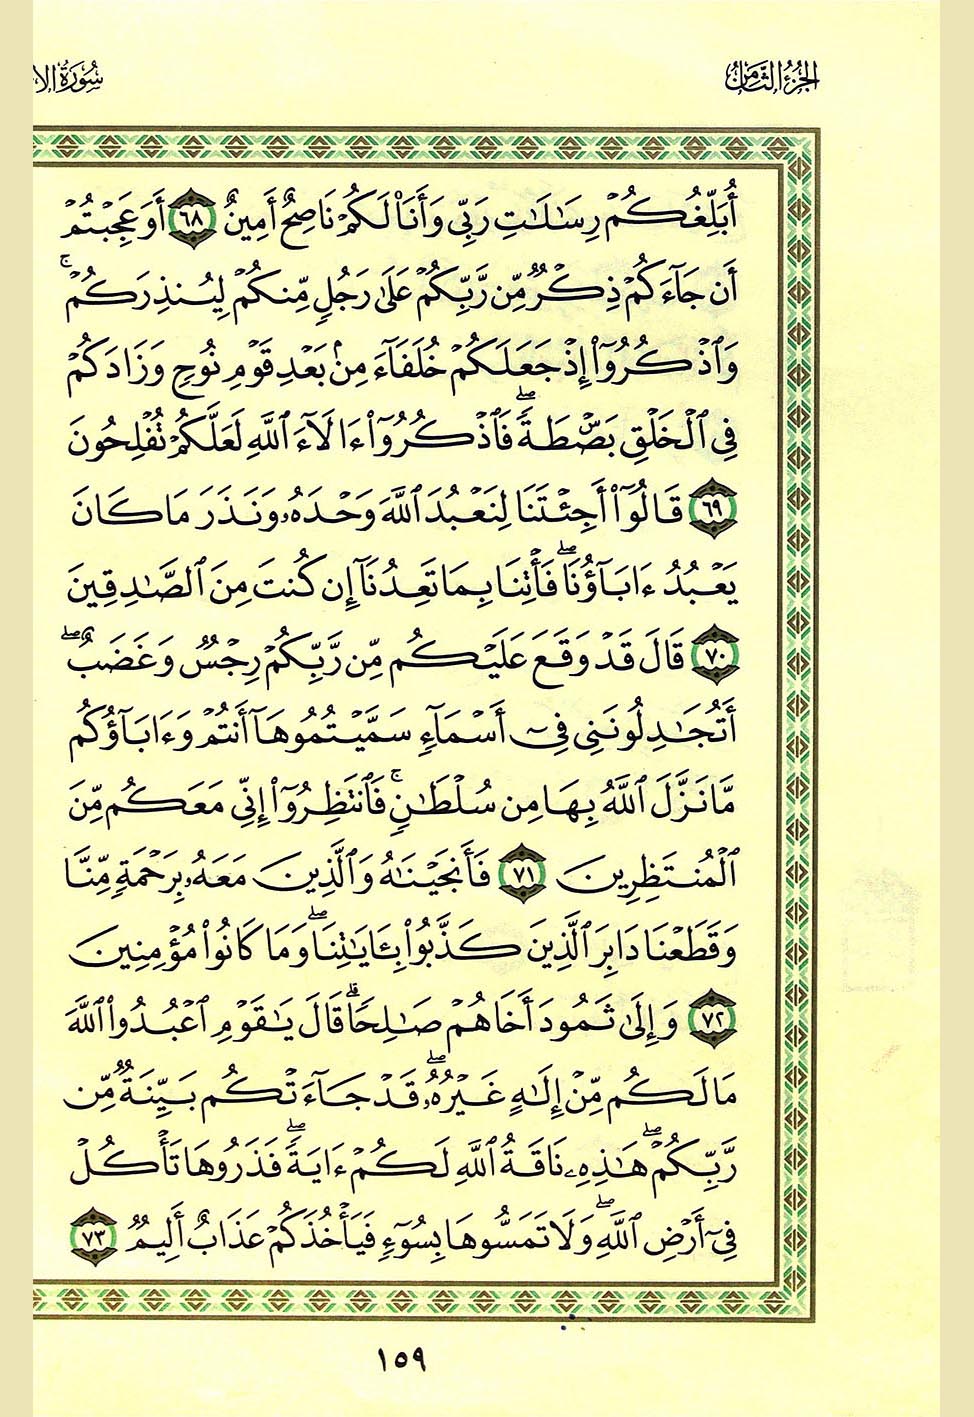 الجزء الثامن
سورة الا
أُبَلِّغُكُمْ رِسَالَاتِ رَبِّي وَأَنَا۠ لَكُمْ نَاصِحٌ أَمِينٌ ٦٨ أَوَعَجِبْتُمْ
أَن جَآءَكُمْ ذِكْرٌ مِّن رَّبِّكُمْ عَلَىٰ رَجُلٍ مِّنكُمْ لِيُنذِرَكُمْ ۚ
وَٱذْكُرُوٓا۟ إِذْ جَعَلَكُمْ خُلَفَآءَ مِنۢ بَعْدِ قَوْمِ نُوحٍ وَزَادَكُمْ
فِي ٱلْخَلْقِ بَصْۜطَةً ۖ فَٱذْكُرُوٓا۟ ءَالَآءَ ٱللَّهِ لَعَلَّكُمْ تُفْلِحُونَ
٦٩ قَالُوٓا۟ أَجِئْتَنَا لِنَعْبُدَ ٱللَّهَ وَحْدَهُۥ وَنَذَرَ مَا كَانَ
يَعْبُدُ ءَابَآؤُنَا ۖ فَأْتِنَا بِمَا تَعِدُنَآ إِن كُنتَ مِنَ ٱلصَّـٰدِقِينَ
٧٠ قَالَ قَدْ وَقَعَ عَلَيْكُم مِّن رَّبِّكُمْ رِجْسٌ وَغَضَبٌ ۖ
أَتُجَـٰدِلُونَنِي فِيٓ أَسْمَآءٍ سَمَّيْتُمُوهَآ أَنتُمْ وَءَابَآؤُكُم
مَّا نَزَّلَ ٱللَّهُ بِهَا مِن سُلْطَـٰنٍ ۚ فَٱنتَظِرُوٓا۟ إِنِّي مَعَكُم مِّنَ
ٱلْمُنتَظِرِينَ ٧١ فَأَنجَيْنَـٰهُ وَٱلَّذِينَ مَعَهُۥ بِرَحْمَةٍ مِّنَّا
وَقَطَعْنَا دَابِرَ ٱلَّذِينَ كَذَّبُوا۟ بِـَٔايَـٰتِنَا ۖ وَمَا كَانُوا۟ مُؤْمِنِينَ
٧٢ وَإِلَىٰ ثَمُودَ أَخَاهُمْ صَـٰلِحًا ۗ قَالَ يَـٰقَوْمِ ٱعْبُدُوا۟ ٱللَّهَ
مَا لَكُم مِّنْ إِلَـٰهٍ غَيْرُهُۥ ۖ قَدْ جَآءَتْكُم بَيِّنَةٌ مِّن
رَّبِّكُمْ ۖ هَـٰذِهِۦ نَاقَةُ ٱللَّهِ لَكُمْ ءَايَةً ۖ فَذَرُوهَا تَأْكُلْ
فِيٓ أَرْضِ ٱللَّهِ ۖ وَلَا تَمَسُّوهَا بِسُوٓءٍ فَيَأْخُذَكُمْ عَذَابٌ أَلِيمٌ ٧٣
١٥٩